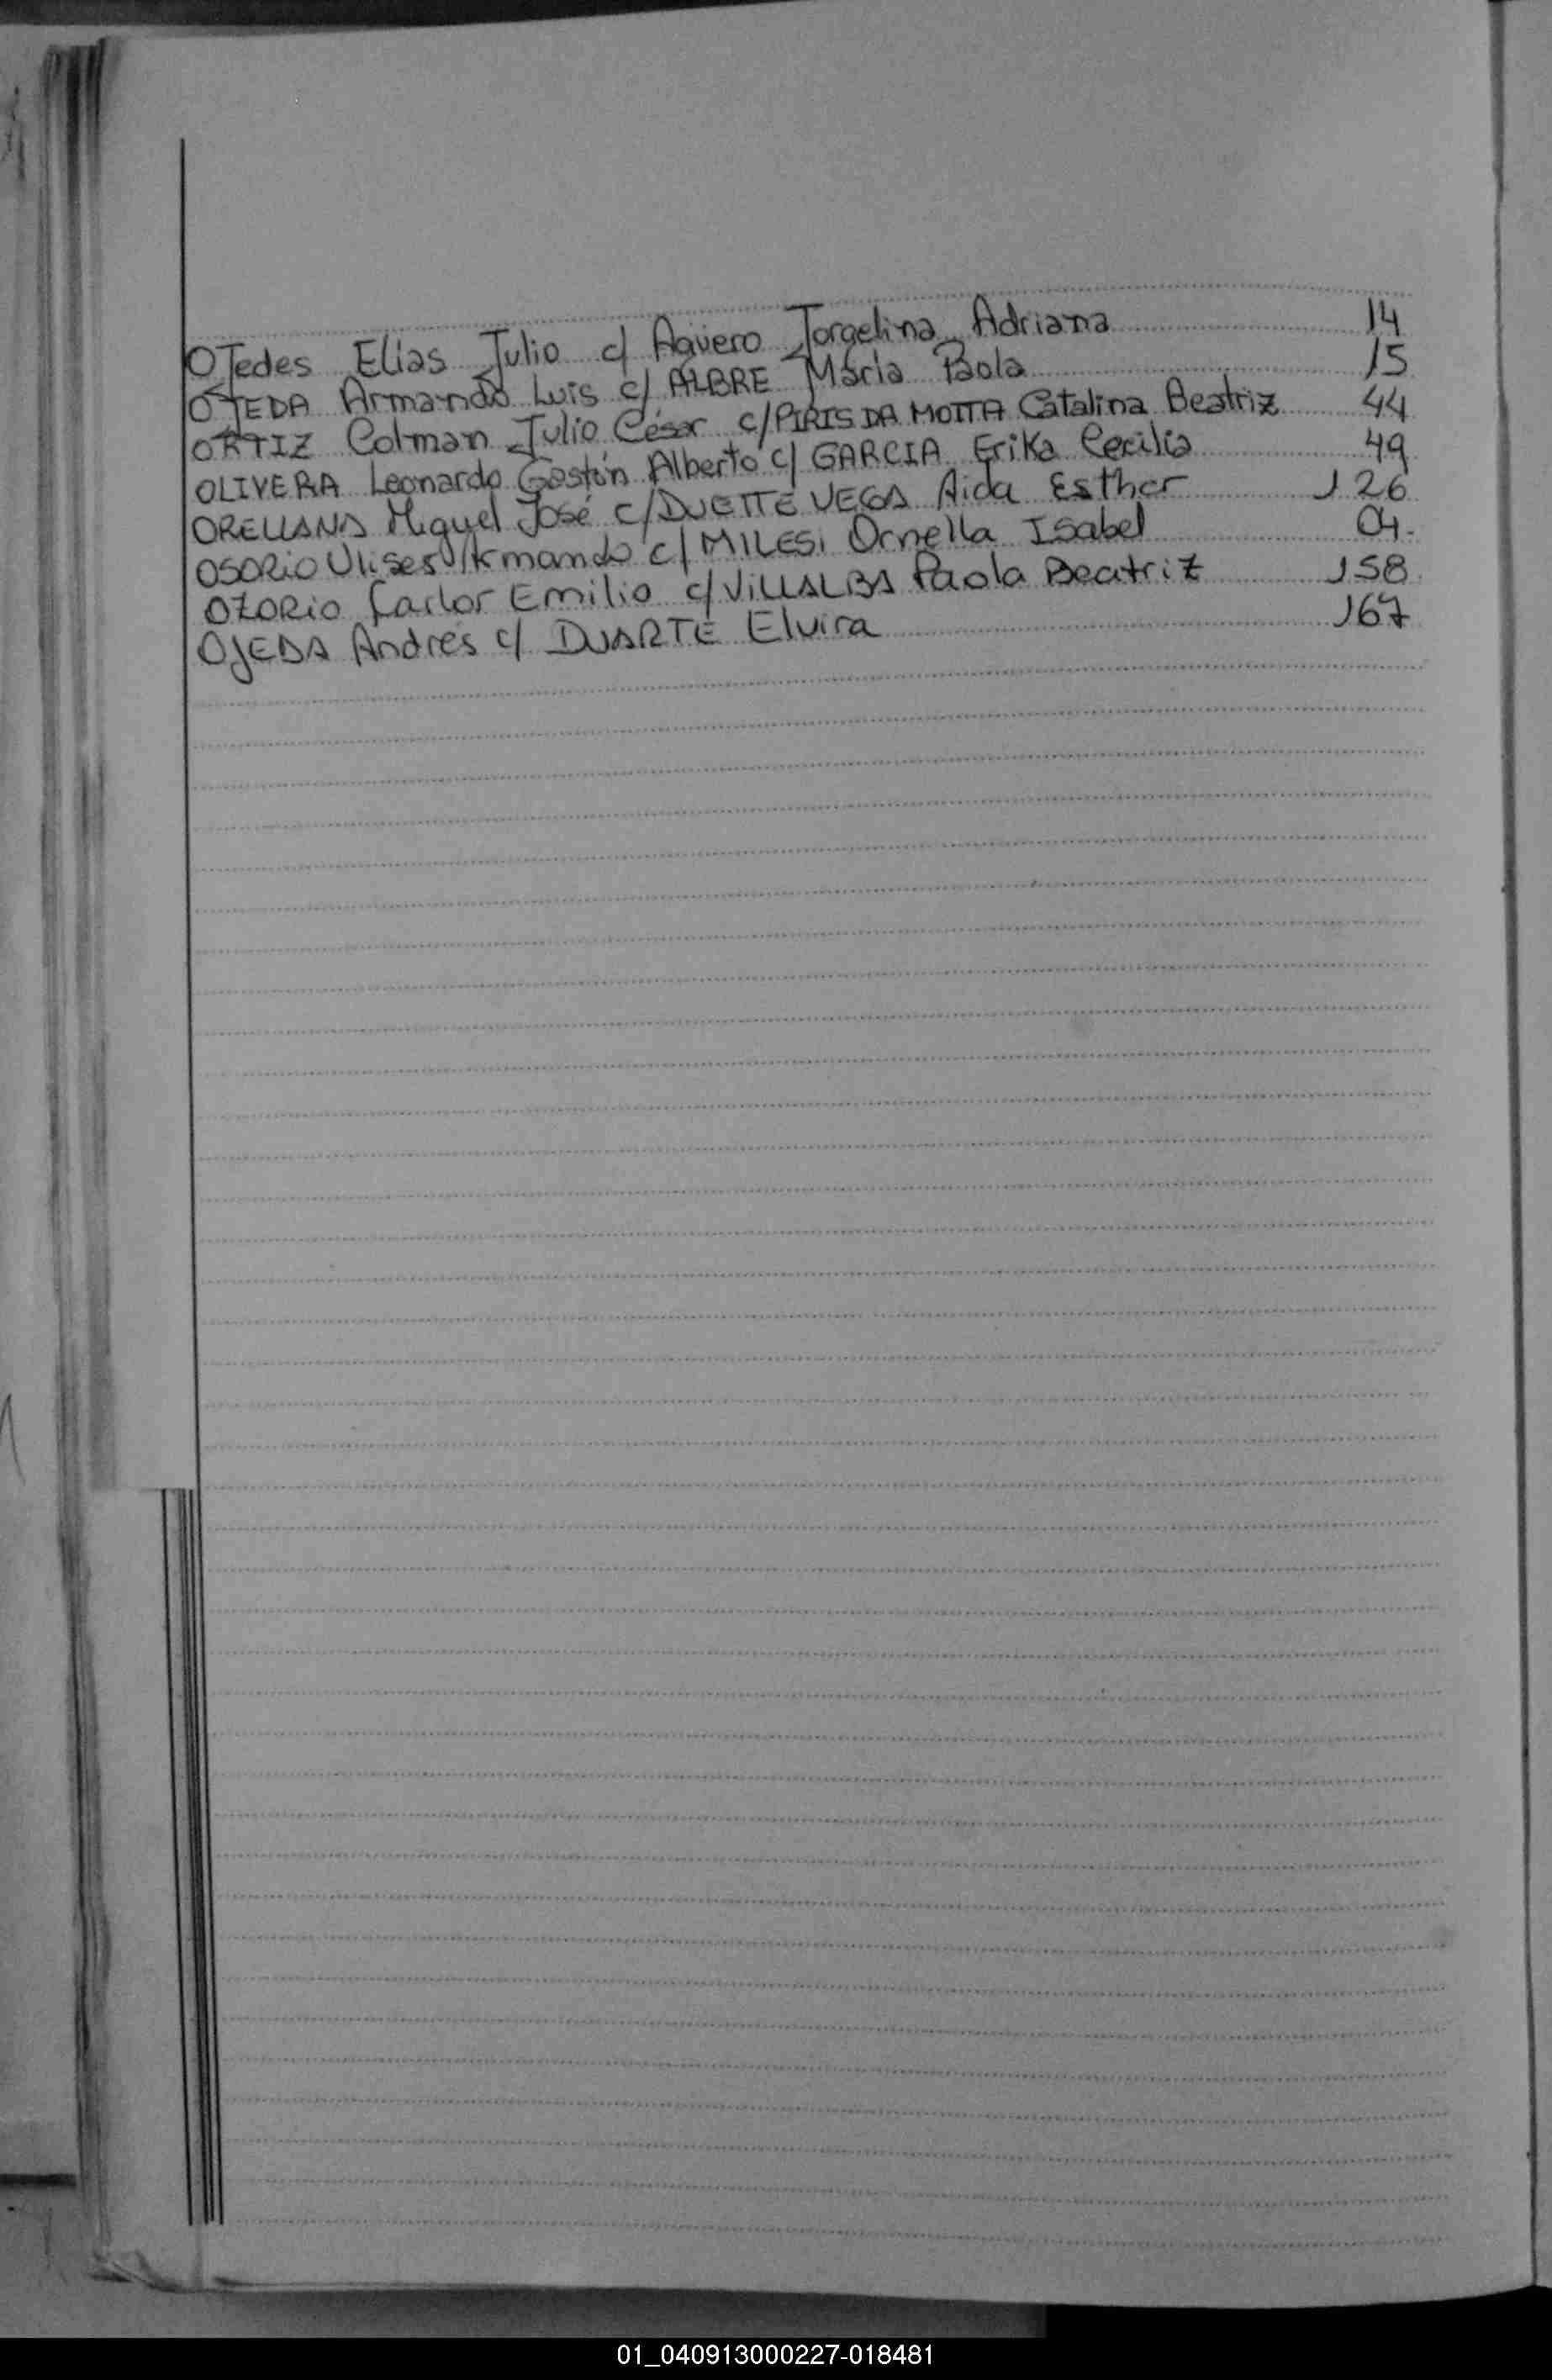 OJedes Elías Julio c/ Agüero Jorgelina Adriana 14
OJEDA Armando Luis c/ ALBRE María Paola 15
ORTIZ Colman Julio César c/ PIRIS DA MOTTA Catalina Beatriz 44
OLIVERA Leonardo Gastón Alberto c/ GARCIA Erika Cecilia 49
ORELLANA Miguel José c/ DUETTE VEGA Aida Esther 126
OSORIO Ulises Armando c/ MILESi Ornella Isabel 04.
OZORIO Carlos Emilio c/ ViLLALBA Paola Beatriz 158
OJEDA Andrés c/ DUARTE Elvira 167
01_040913000227-018481